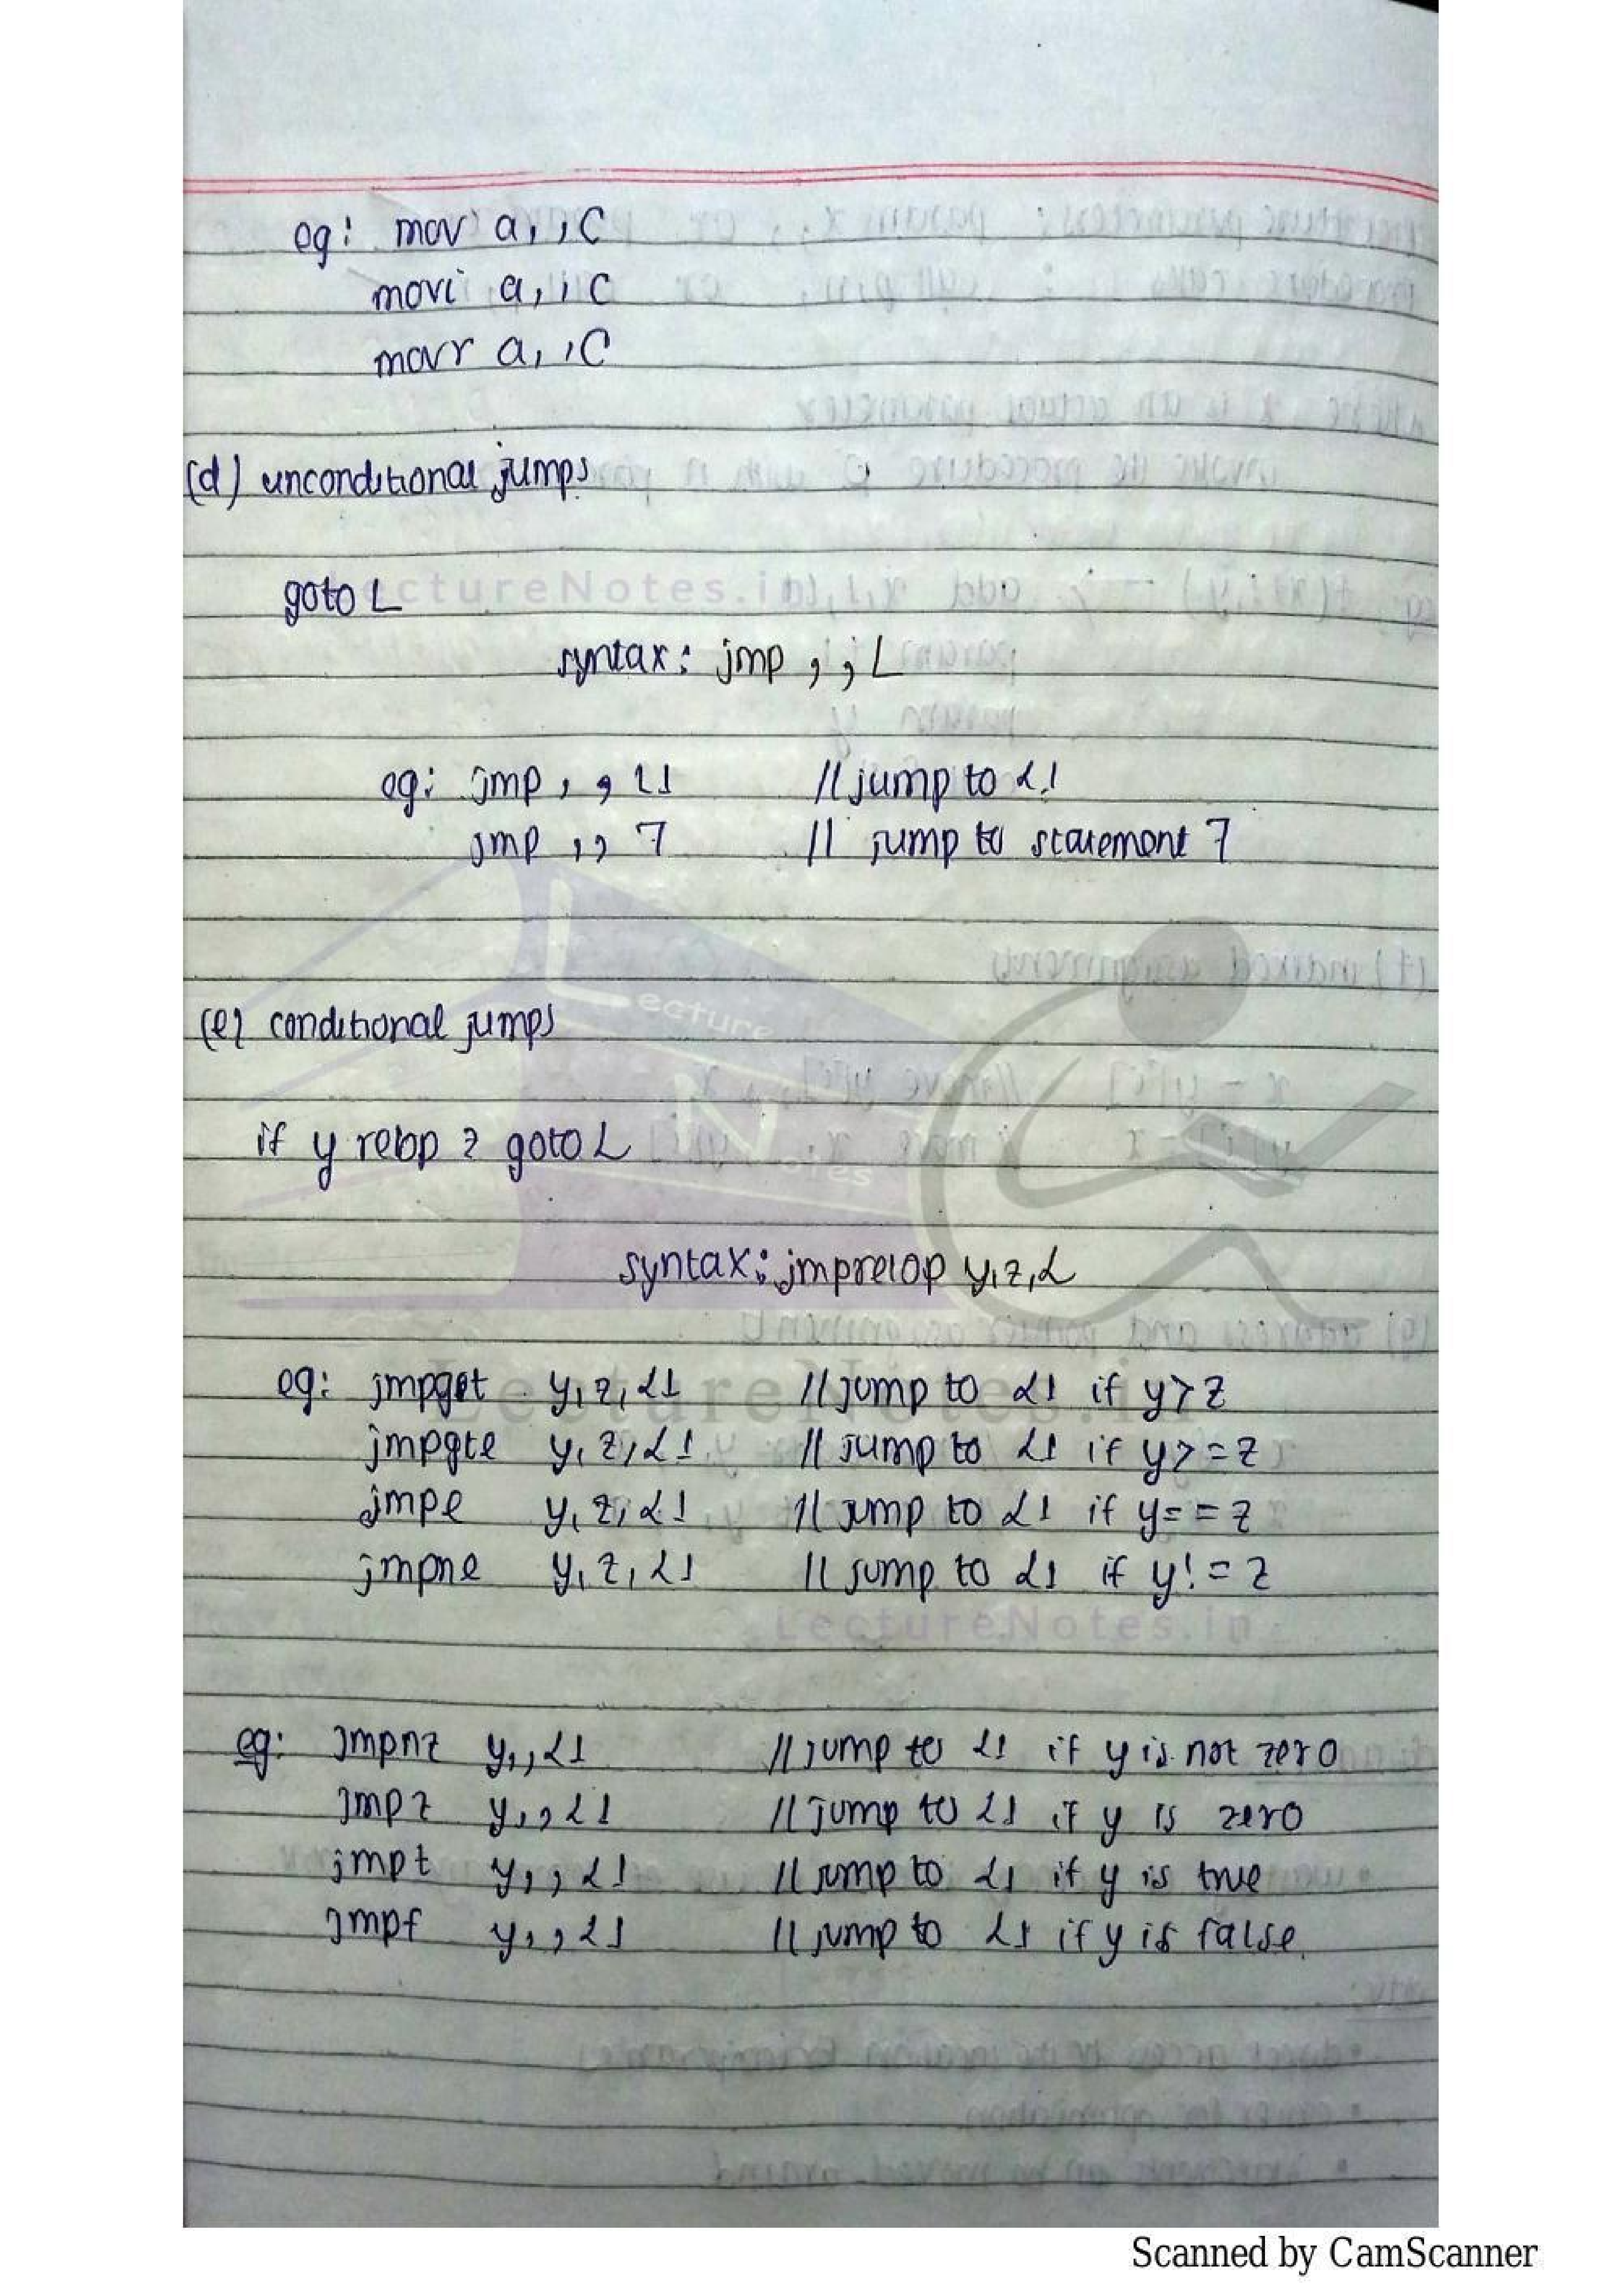 eg: mov a, , C
movi a, , C
movr a, , C
(d) unconditional jumps
LectureNotes.in
goto L
syntax: jmp , , L
eg: jmp , , L1 // jump to L1
jmp , , 7 // jump to statement 7
Lecture
(e) conditional jumps
Notes
if y relop z goto L
syntax: jmprelop y, z, L
LectureNotes.in
eg: jmpgt y, z, L1 // jump to L1 if y > z
jmpgte y, z, L1 // jump to L1 if y > = z
jmpe y, z, L1 // jump to L1 if y = = z
jmpne y, z, L1 // jump to L1 if y ! = z
LectureNotes.in
eg: jmpnz y, , L1 // jump to L1 if y is not zero
jmpz y, , L1 // jump to L1 if y is zero
jmpt y, , L1 // jump to L1 if y is true
jmpf y, , L1 // jump to L1 if y is false.
Scanned by CamScanner